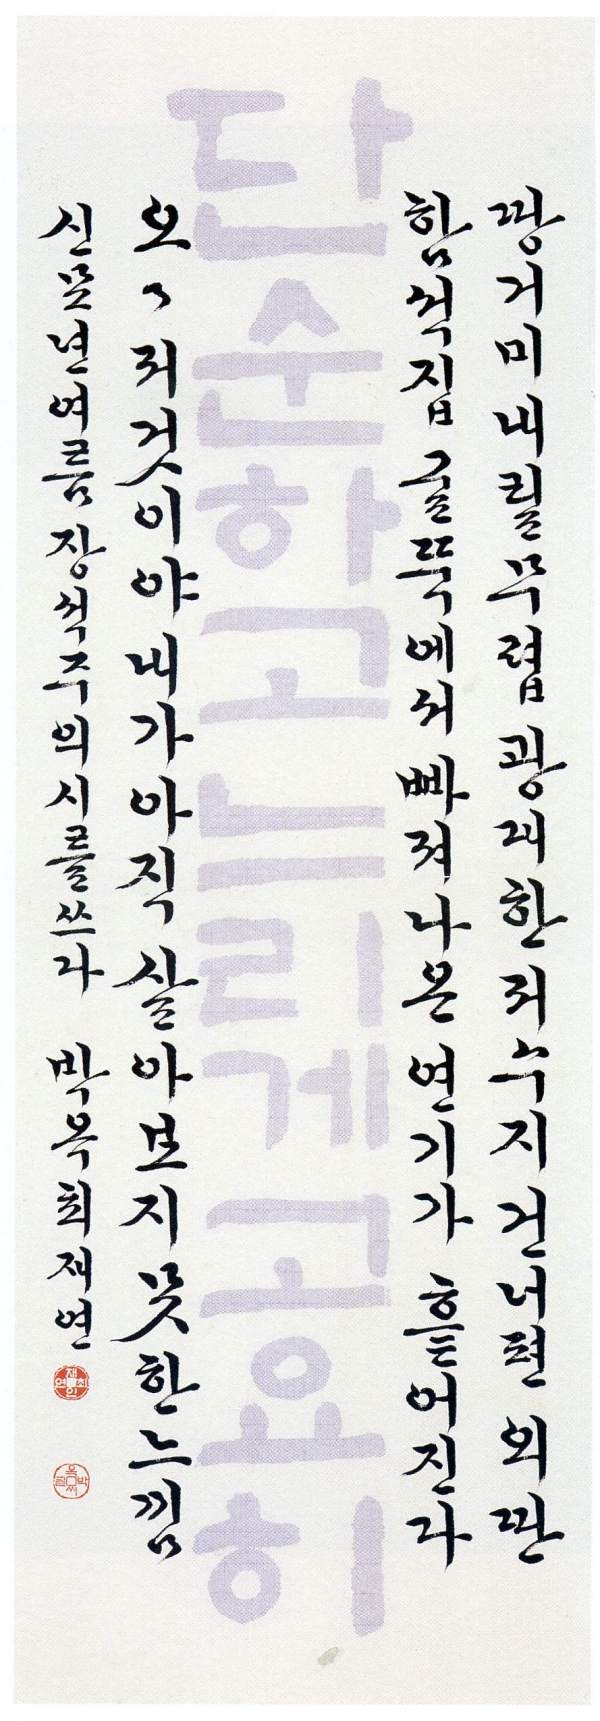 땅거미 내릴 무렵 광대한 저수지 건너편 외딴
함석집 굴뚝에서 빠져나온 연기가 흩어진다
단순하고 느리게 고요히
오, 저것이야 내가 아직 살아보지 못한 느낌
신묘년 여름 장석주의 시를 쓰다 박옥 최재연